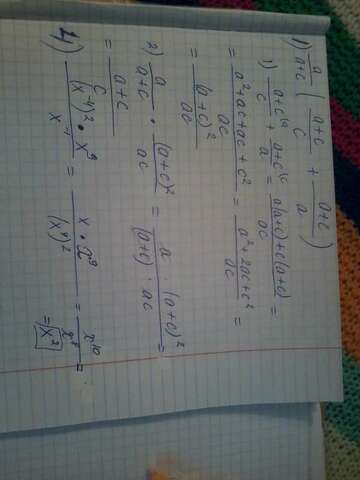 1) a/(a+c) ( (a+c)/c + (a+c)/a )
1) (a+c)/c + (a+c)/a = (a(a+c)+c(a+c))/ac =
= (a²+ac+ac+c²)/ac = (a²+2ac+c²)/ac =
= (a+c)²/ac
2) a/(a+c) · (a+c)²/ac = (a · (a+c)²)/((a+c) · ac) =
= (a+c)/c
((x⁻⁴)² · x⁹)/x⁻¹ = (x · x⁹)/(x⁴)² = x¹⁰/x⁸ =
= x²